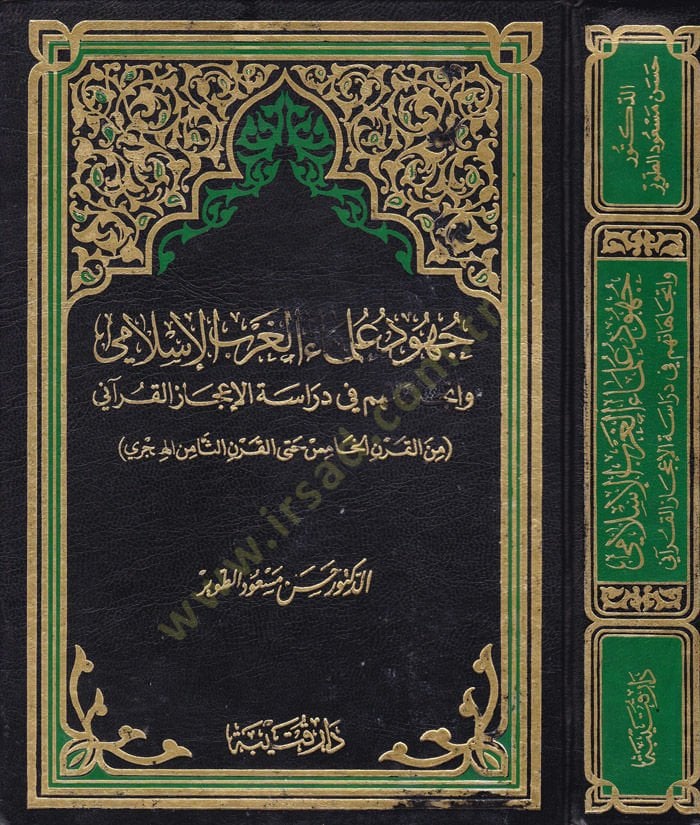 جُهُودُ عُلَمَاءِ الغَرْبِ الإِسْلَامِي
واتجاهاتهم في دراسة الإعجاز القُرآني
(مِنَ القَرْنِ الخَامِسْ حَتَّى القَرْنِ الثَّامِنِ الهِجْرِي)
الدكتور حسن مسعود الطوير
دَارُ قُتَيْبَة
www.irsad.com.tr
الدكتور
حسن مسعود الطوير
جُهُودُ عُلَمَاءِ الغَرْبِ الإِسْلَامِي
واتجاهاتهم في دراسة الإعجاز القرآني
دَارُ قُتَيْبَة